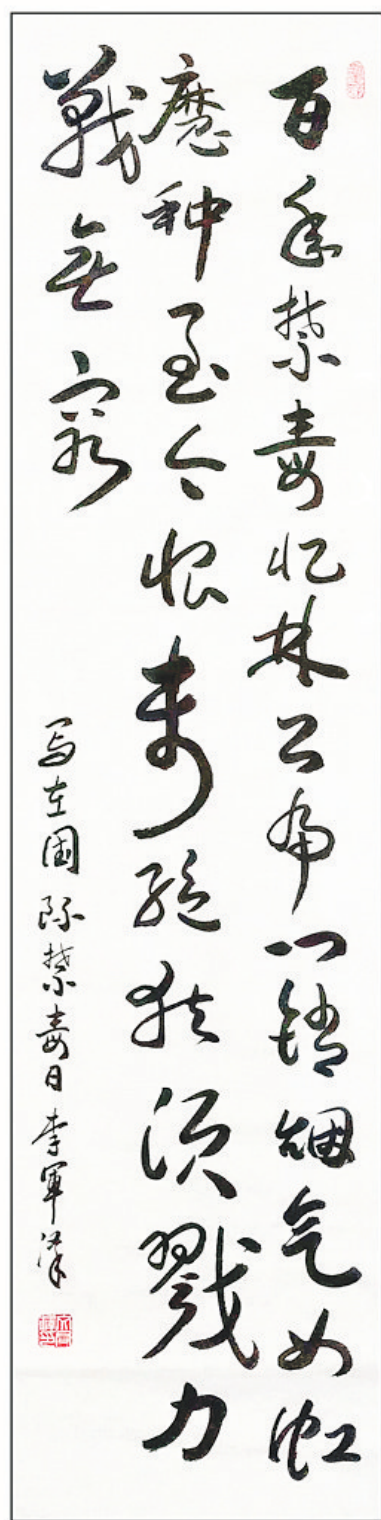 百年禁毒忆林公虎门销烟气如虹
魔种至今根未绝犹须戮力
战无穷
写在国际禁毒日李军泽